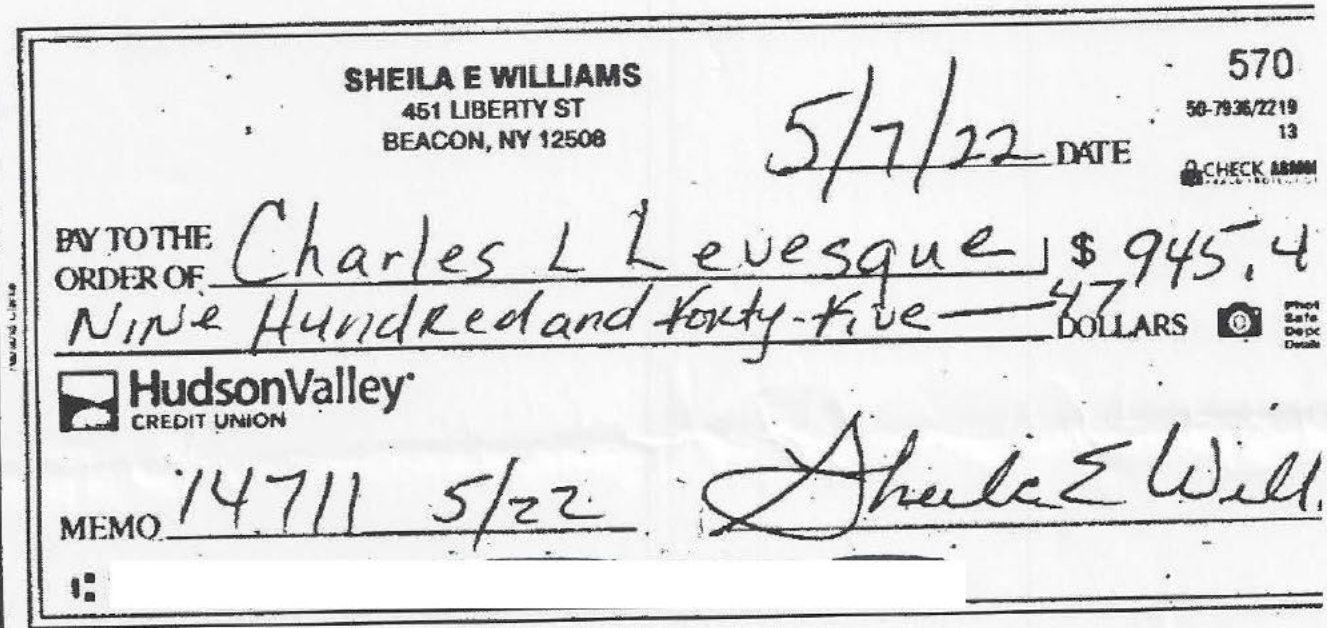 SHEILA E WILLIAMS
451 LIBERTY ST
BEACON, NY 12508
570
50-7936/2219
13
5/7/22 DATE
CHECK
PAY TO THE ORDER OF Charles L Levesque $ 945.4
Nine Hundred and forty-five — 47 DOLLARS
Safe
HudsonValley
CREDIT UNION
MEMO 14711 5/22
Sheila E Will